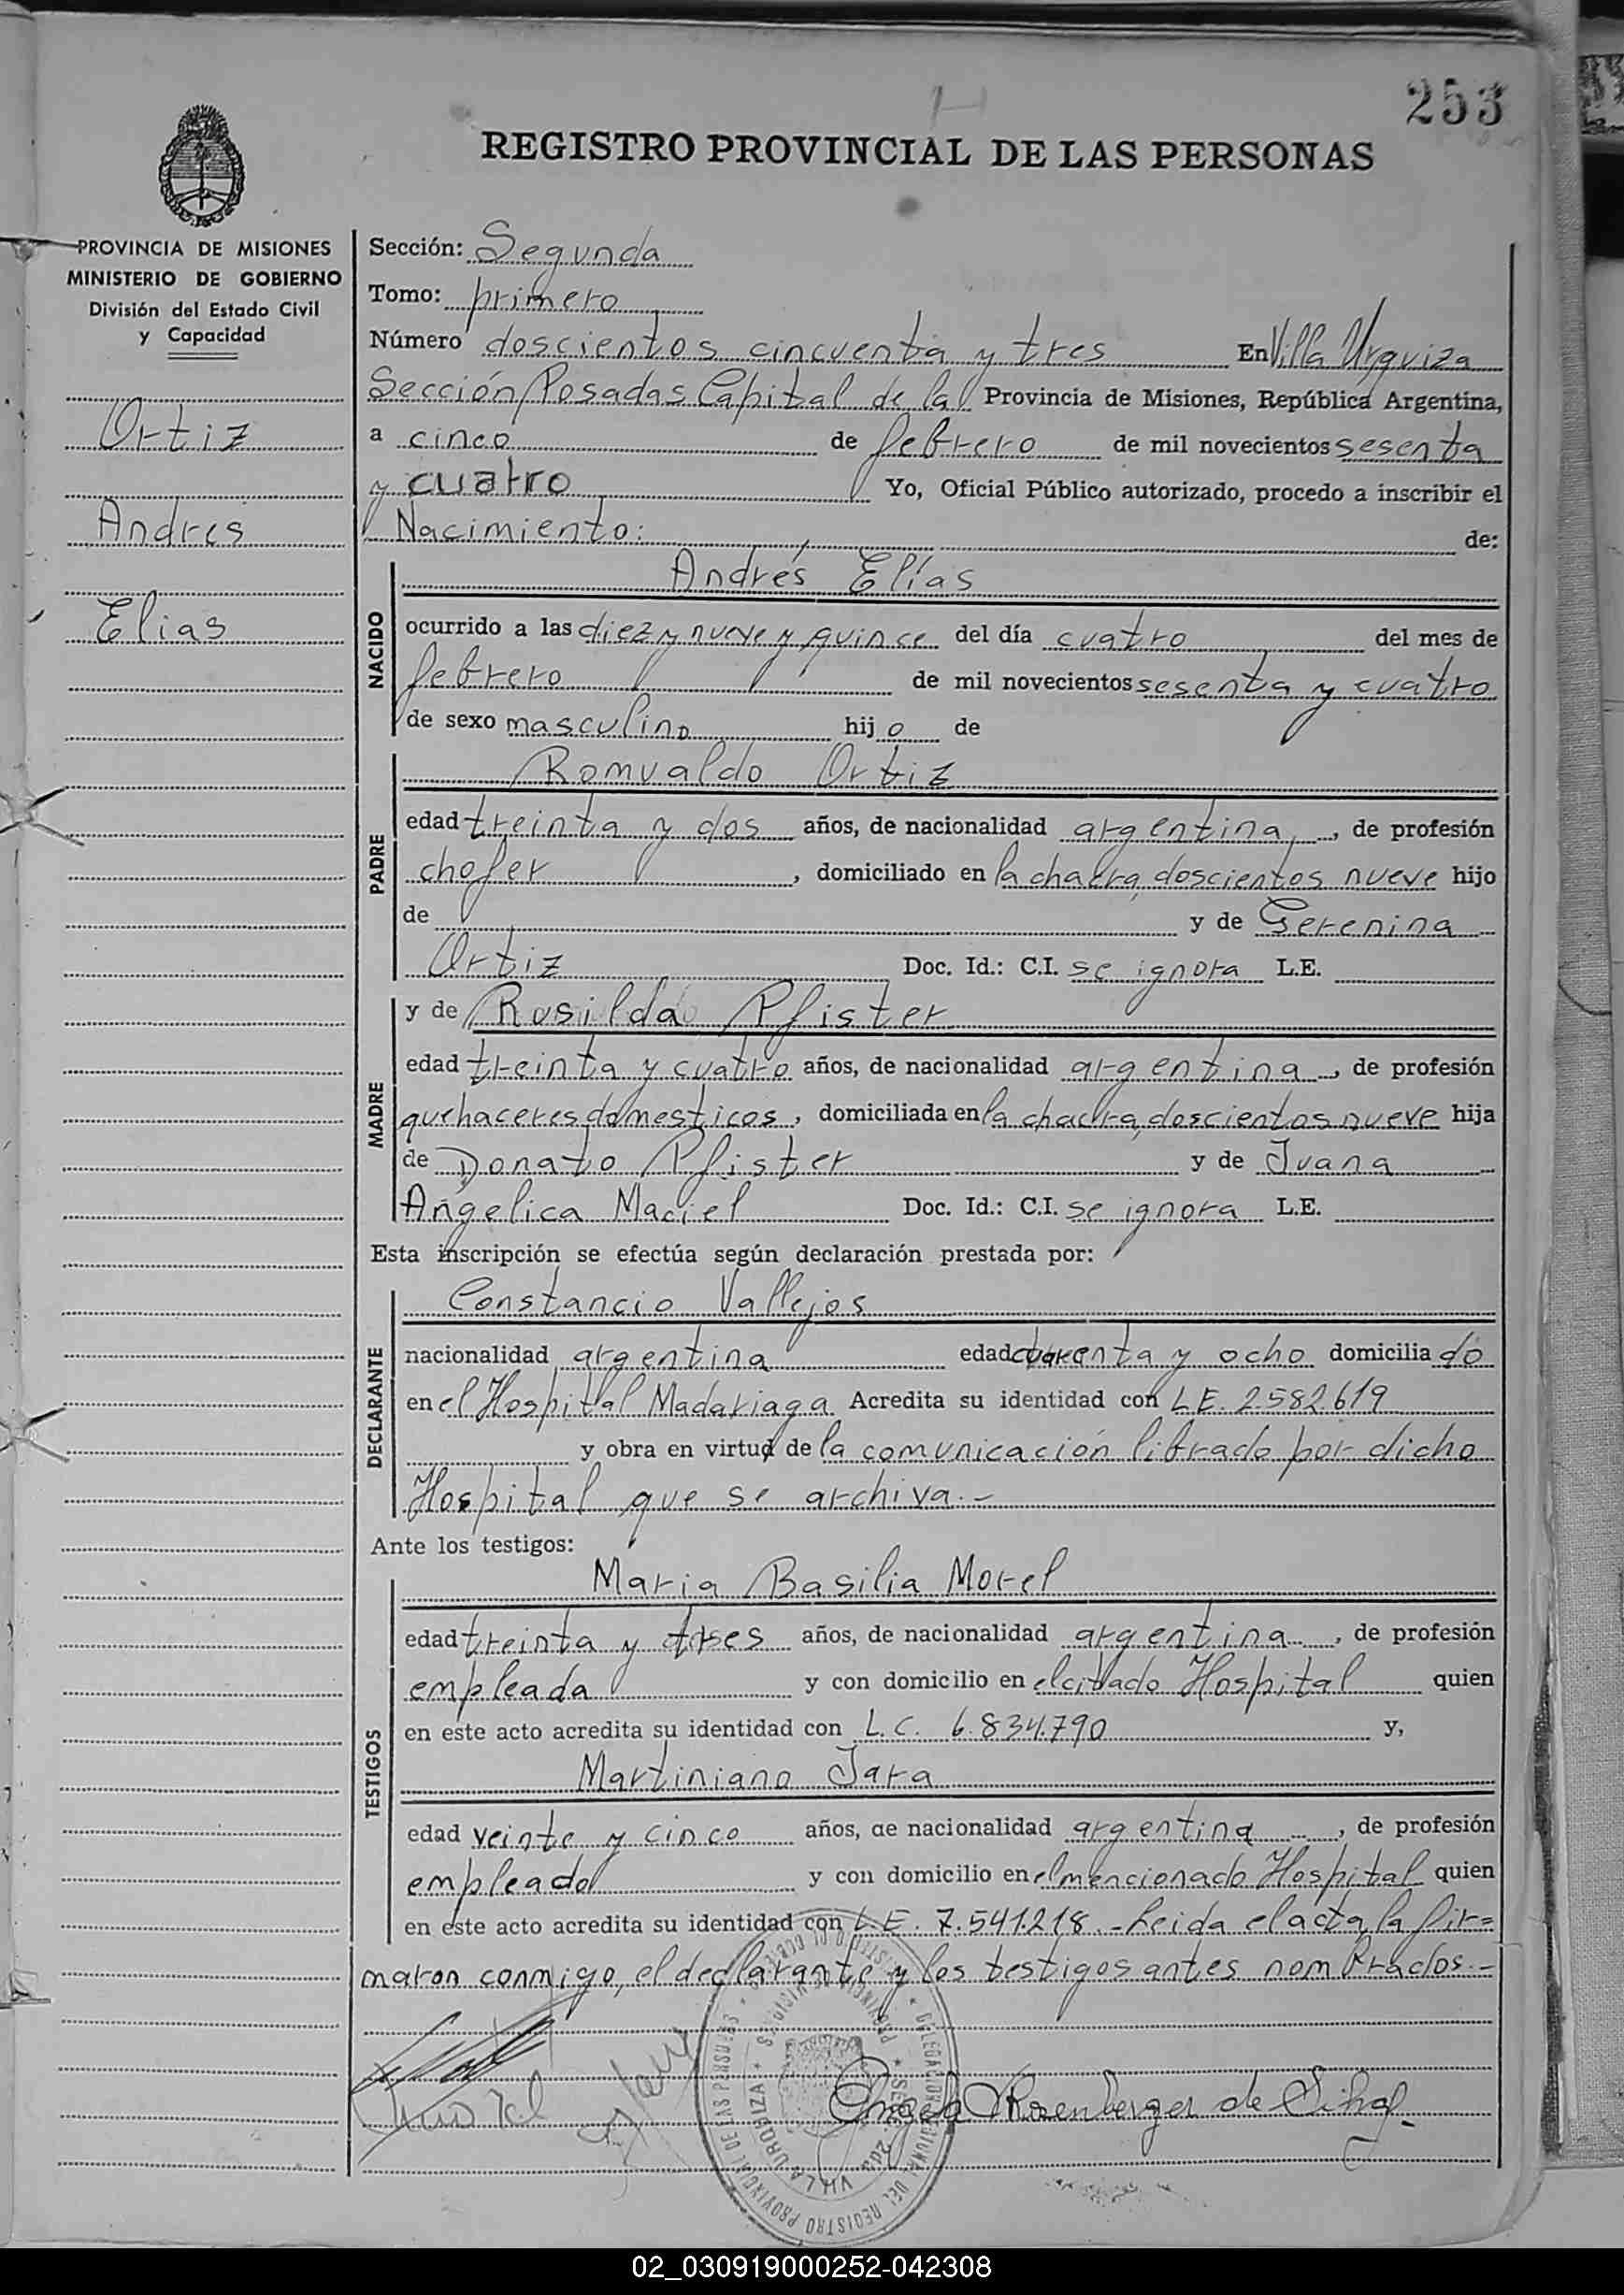 253
REGISTRO PROVINCIAL DE LAS PERSONAS
PROVINCIA DE MISIONES
MINISTERIO DE GOBIERNO
División del Estado Civil
y Capacidad
Ortiz
Andrés
Elias
Sección: Segunda
Tomo: primero
Número doscientos cincuenta y tres En Villa Urquiza
Sección Posadas Capital de la Provincia de Misiones, República Argentina,
a cinco de febrero de mil novecientos sesenta
y cuatro Yo, Oficial Público autorizado, procedo a inscribir el
Nacimiento: de:
NACIDO
Andrés Elías
ocurrido a las diez y nueve y quince del día cuatro del mes de
febrero de mil novecientos sesenta y cuatro
de sexo masculino hijo de
PADRE
Romualdo Ortiz
edad treinta y dos años, de nacionalidad argentina, de profesión
chofer, domiciliado en la chacra doscientos nueve hijo
de y de Gerenina
Ortiz Doc. Id.: C.I. se ignora L.E.
MADRE
y de Rosilda Pfister
edad treinta y cuatro años, de nacionalidad argentina, de profesión
quehaceres domesticos, domiciliada en la chacra doscientos nueve hija
de Donato Pfister y de Juana
Angelica Maciel Doc. Id.: C.I. se ignora L.E.
Esta inscripción se efectúa según declaración prestada por:
DECLARANTE
Constancio Vallejos
nacionalidad argentina edad cuarenta y ocho domiciliado
en el Hospital Madariaga Acredita su identidad con L.E. 2.582.619
y obra en virtud de la comunicación librado por dicho
Hospital que se archiva.-
Ante los testigos:
TESTIGOS
Maria Basilia Morel
edad treinta y tres años, de nacionalidad argentina, de profesión
empleada y con domicilio en el citado Hospital quien
en este acto acredita su identidad con L.C. 6.834.790 y,
Martiniano Jara
edad veinte y cinco años, de nacionalidad argentina, de profesión
empleado y con domicilio en el mencionado Hospital quien
en este acto acredita su identidad con L.E. 7.541.218.- Leida el acta, la fir=
maron conmigo, el declarante y los testigos antes nombrados.-
DELEGACION REGIONAL DEL REGISTRO PROVINCIAL DE LAS PERSONAS
VILLA URQUIZA
02_030919000252-042308